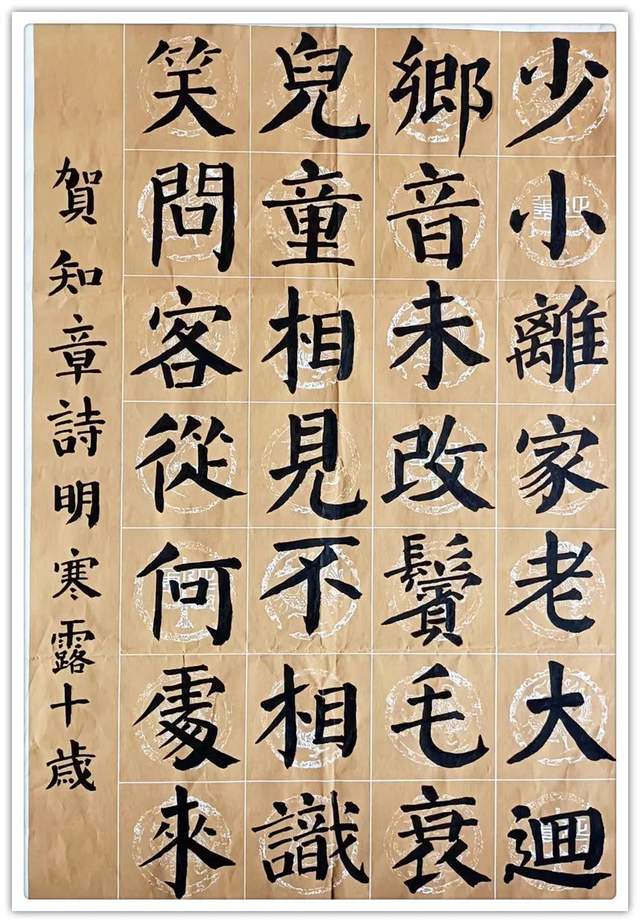 少小離家老大迴
鄉音未改鬢毛衰
兒童相見不相識
笑問客從何處來
賀知章詩明寒露十歲